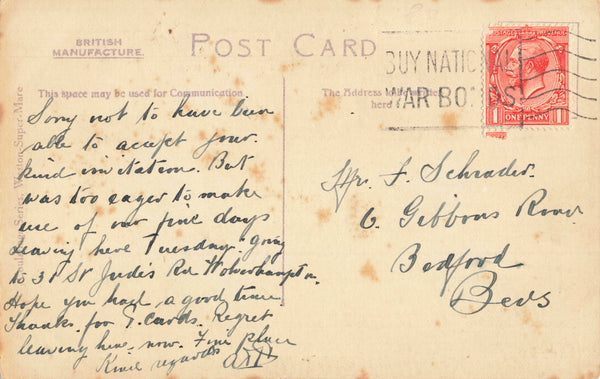 BRITISH
MANUFACTURE.
POST CARD
This space may be used for Communication
The Address
here
BUY NATIONAL
WAR BONDS
ONE PENNY
Weston-Super-Mare
Sorry not to have been
able to accept your
kind invitation. But
was too eager to make
use of our fine days
Leaving here Tuesday. going
to 31 St Jude's Rd Wolverhampton.
Hope you had a good time.
Thanks for 7. cards. Regret
leaving here now. Fine place
Kind regards
Mr. F. Schrader.
6. Gibbons Road
Bedford
Beds